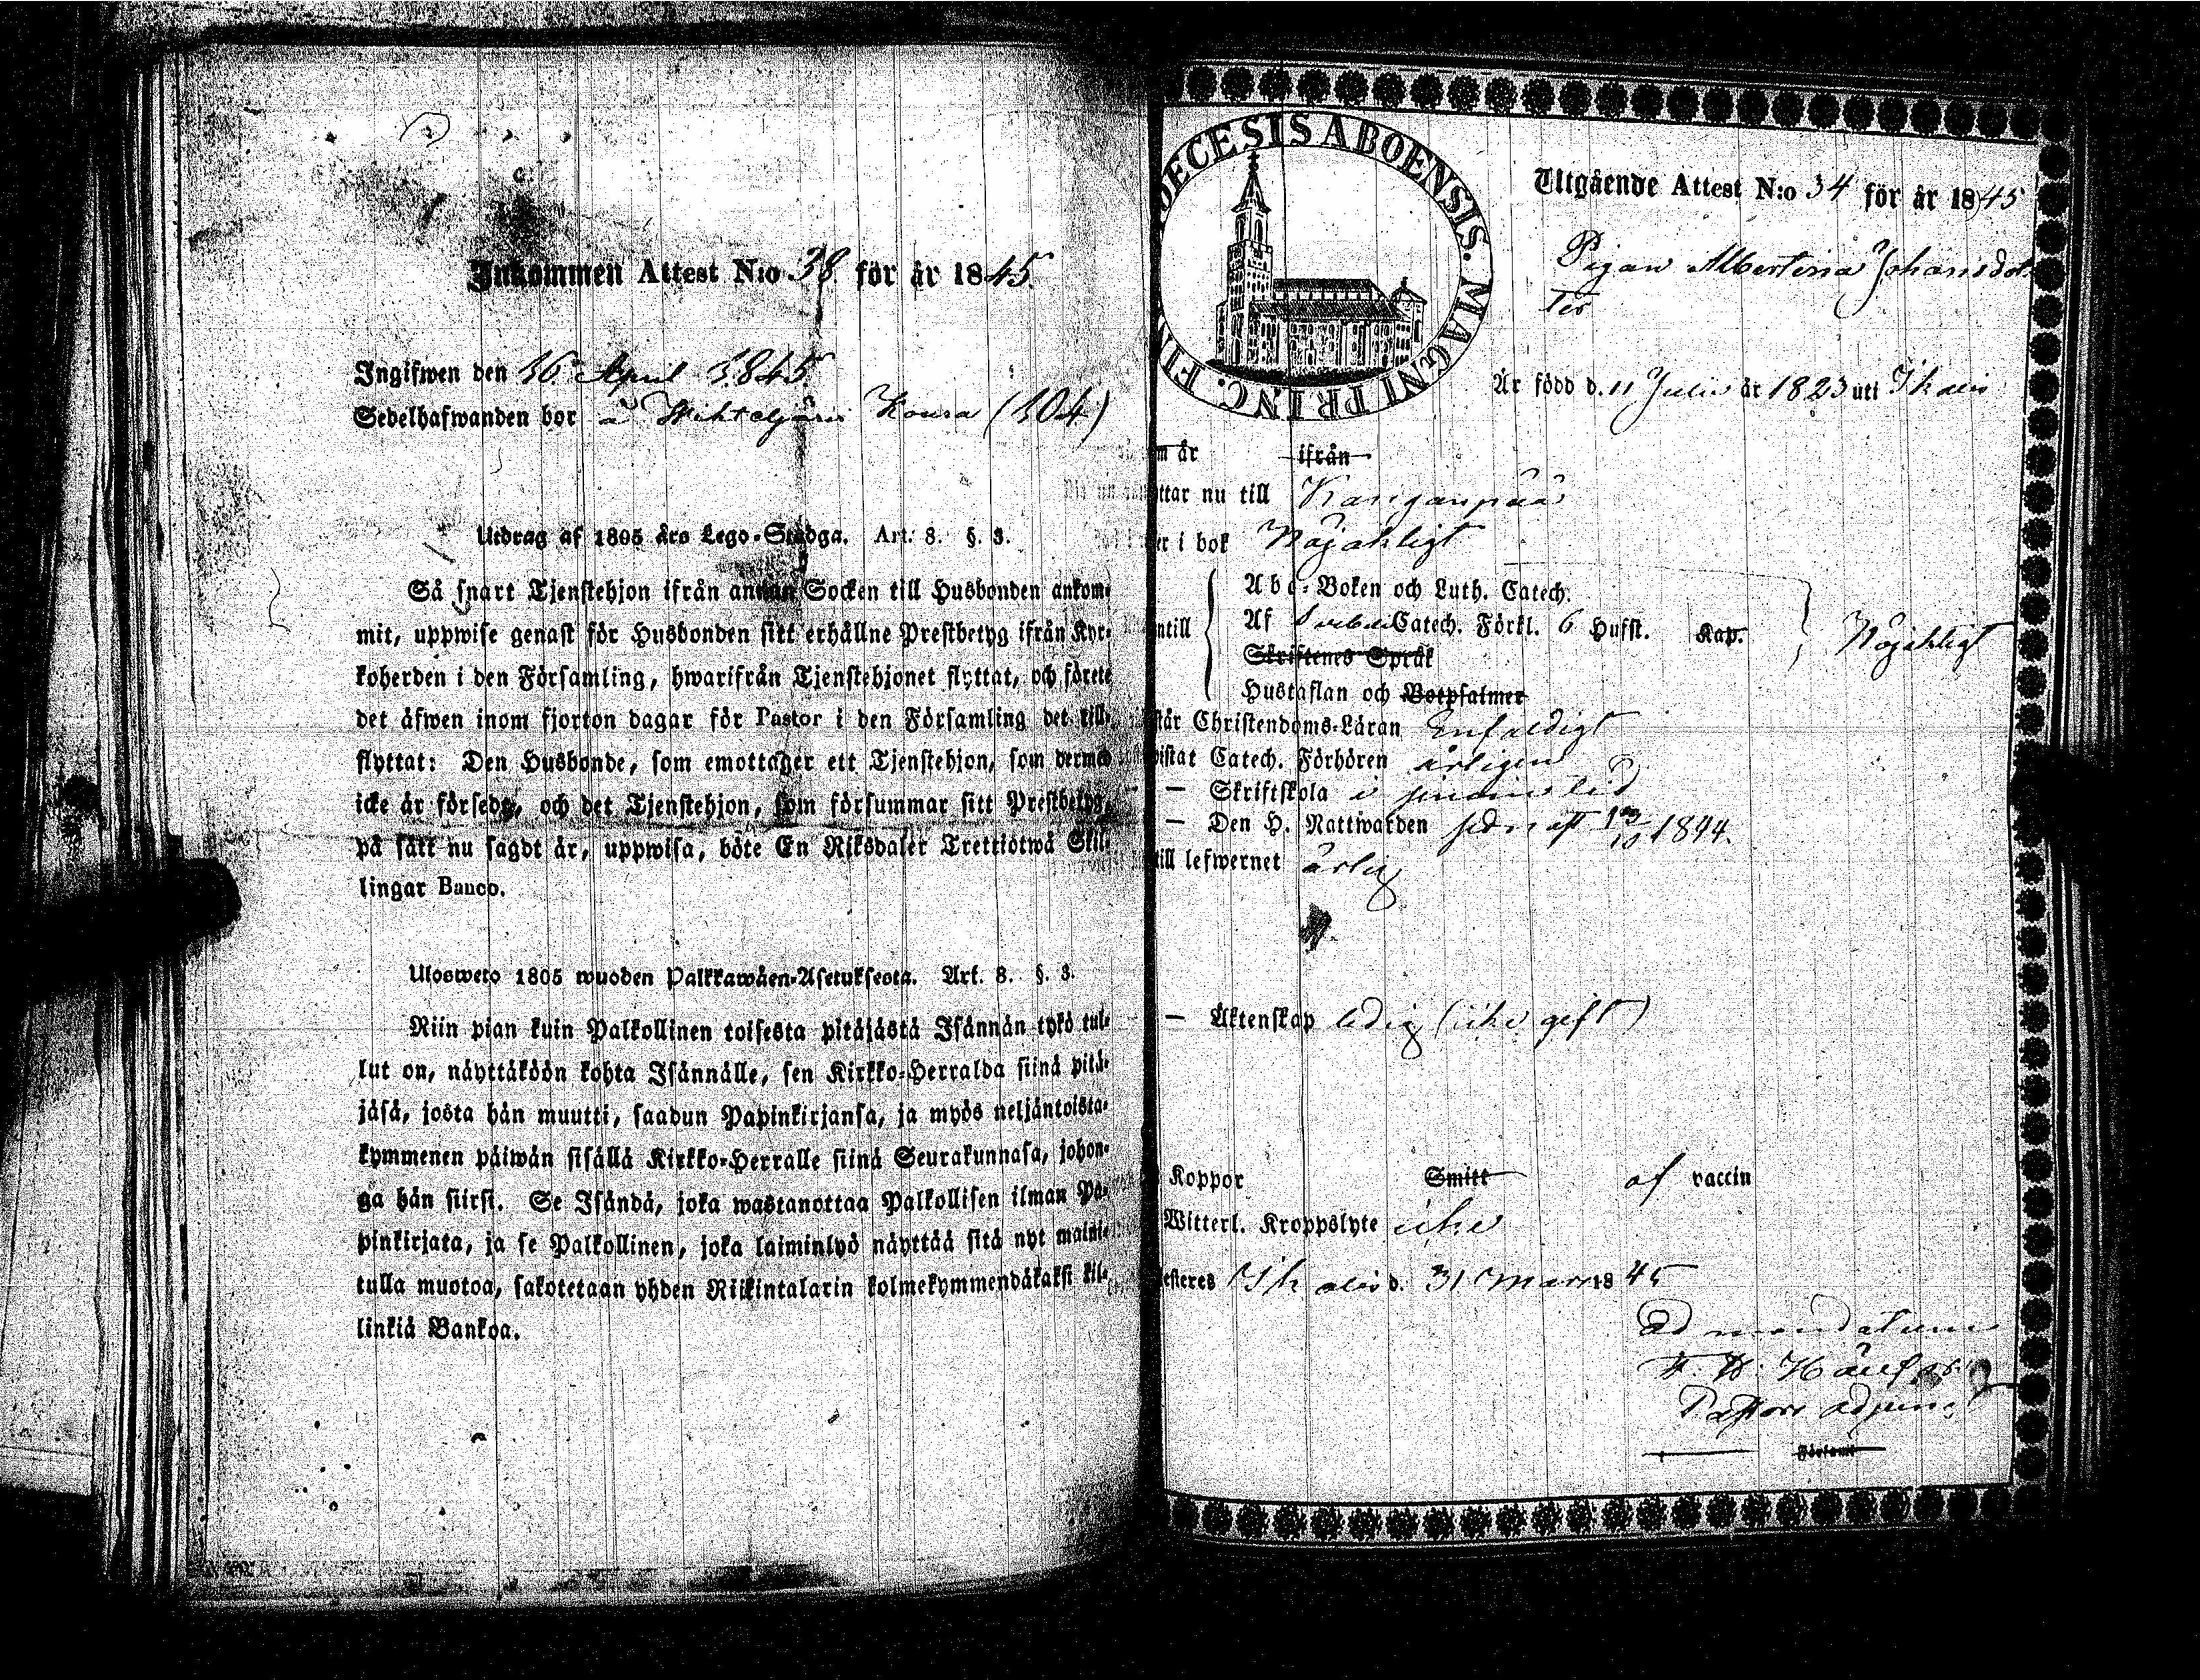 Inkommen Attest N:o 38 för år 1845.
Ingifwen den 16 April 1845.
Sedelhafwanden bor å Wihteljärvi Koura (104)
Utdrag af 1805 års Lego-Stadga. Art. 8. §. 3.
Så snart Tjenstehjon ifrån annan Socken till Husbonden ankom-
mit, uppwise genast för Husbonden sitt erhållne Prestbetyg ifrån Kyr-
koherden i den Församling, hwarifrån Tjenstehjonet flyttat, och förete
det äfwen inom fjorton dagar för Pastor i den Församling det till-
flyttat: Den Husbonde, som emottager ett Tjenstehjon, som dermed
icke är försedt, och det Tjenstehjon, som försummar sitt Prestbetyg,
på sätt nu sagdt är, uppwisa, böte En Riksdaler Trettiotwå Skil-
lingar Banco.
Ulosweto 1805 wuoden Palkkawäen-Asetuksesta. Art. 8. §. 3.
Niin pian kuin Palkollinen toisesta pitäjästä Isännän tykö tul-
lut on, näyttäköön kohta Isännälle, sen Kirkko-Herralda siinä pitä-
jäsä, josta hän muutti, saadun Papinkirjansa, ja myös neljäntoista-
kymmenen päiwän sisällä Kirkko-Herralle siinä Seurakunnasa, johon-
ga hän siirsi. Se Isändä, joka wastanottaa Palkollisen ilman Pa-
pinkirjata, ja se Palkollinen, joka laiminlyö näyttää sitä nyt mainit-
tulla muotoa, sakotetaan yhden Riikintalarin kolmekymmendäkaksi kil-
linkiä Bankoa.
DECESIS ABOENSIS. MAGNI PRINC. FI
Utgående Attest N:o 34 för år 1845
Pigan Albertina Johansdot-
ter
År född d. 11 Julii år 1823 uti Ikalis
m år ifrån
ttar nu till Kangaanpää
er i bok Nöjaktligt
Abc-Boken och Luth. Catech.
ntill Af Catech. Förkl. 6 Hufst. Kap. Nöjaktligt
Skriftenes Språk
Hustaflan och Botpsalmer
står Christendoms-Läran Enfaldigt
wistat Catech. Förhören årligen
— Skriftskola i sinom tid
— Den H. Nattwarden sednast 13/10 1844.
till lefwernet ärlig
— Äktenskap ledig (icke gift)
Koppor Smitt af vaccin
Witterl. Kroppslyte icke
esteres Ikalis d. 31 Mars 1845
Ad mandatum
Pastors adjunct
Församl